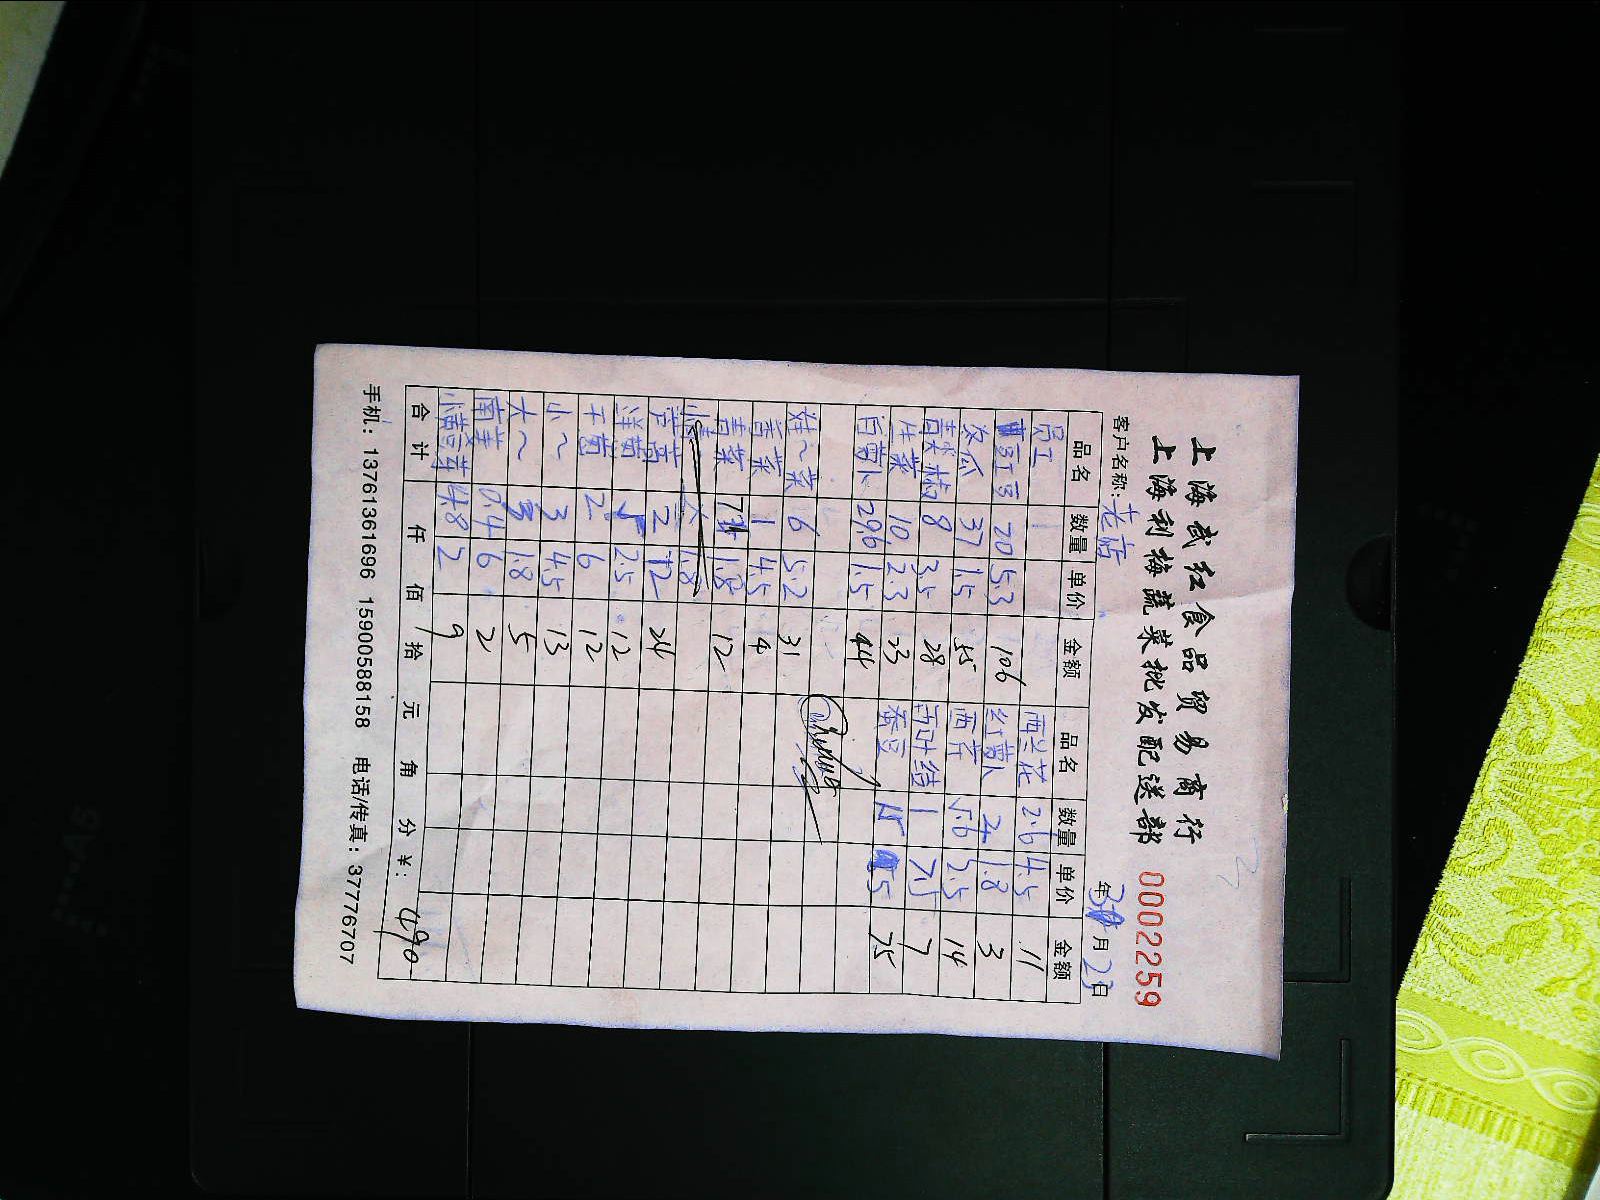 上海武红食品贸易商行
上海利梅蔬菜批发配送部 0002259
客户名称:老店 年3月23日
品名 数量 单价 金额 品名 数量 单价 金额
西兰花 2.6 4.5 11
豇豆 20 5.3 106 红萝卜 2 1.8 3
冬瓜 37 1.5 55 西芹 5.6 2.5 14
青椒 8 3.5 28 百叶结 1 7.5 7
生菜 10 2.3 23 蚕豆 15 5 75
白萝卜 29.6 1.5 44
娃~菜 6 5.2 31
香菜 1 4.5 4
青菜 7 1.8 12
1.8
芦蒿 2 12 24
洋葱 5 2.5 12
干葱 2 6 12
小~ 3 4.5 13
大~ 3 1.8 5
南姜 0.4 6 2
小黄豆芽 4.8 2 9
合计 仟 佰 拾 元 角 分 ¥: 490
手机: 13761361696 15900588158 电话/传真: 37776707